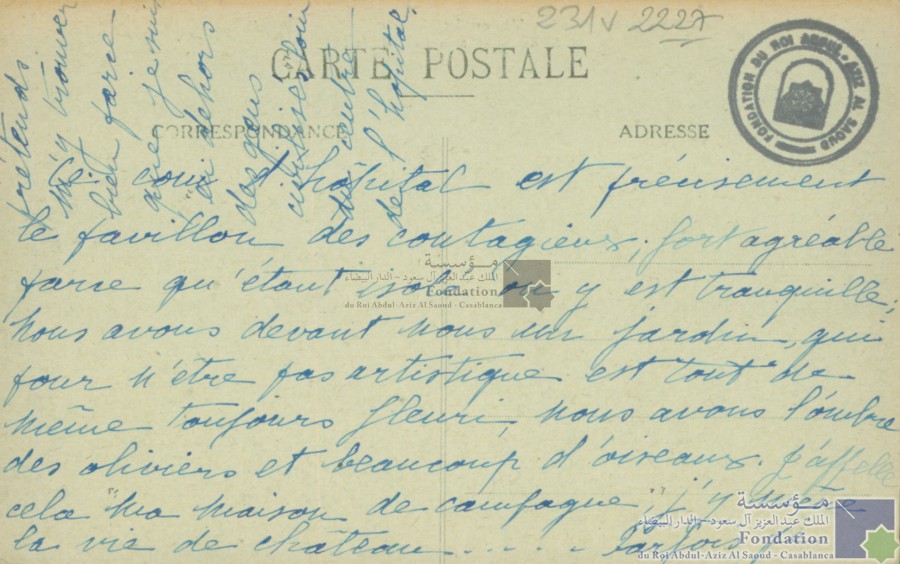 231v 2227
CARTE POSTALE
CORRESPONDANCE
ADRESSE
FONDATION DU ROI ABDUL-AZIZ AL SAOUD
Ce coin d'hôpital est précisement
le pavillon des contagieux, fort agréable
parce qu'étant isolé on y est tranquille;
nous avons devant nous un jardin, qui
pour n'être pas artistique est tout de
même toujours fleuri, nous avons l'ombre
des oliviers et beaucoup d'oiseaux. J'appelle
cela "ma maison de campagne", j'y mène
la vie de château ..... Parfois je
prétends
m'y trouver
bien parce
que je suis
en dehors
des gens
civilisés loin
du centre
de l'hôpital.
مؤسسة
الملك عبد العزيز آل سعود - الدار البيضاء
Fondation
du Roi Abdul-Aziz Al Saoud - Casablanca
مؤسسة
الملك عبد العزيز آل سعود - الدار البيضاء
Fondation
du Roi Abdul-Aziz Al Saoud - Casablanca